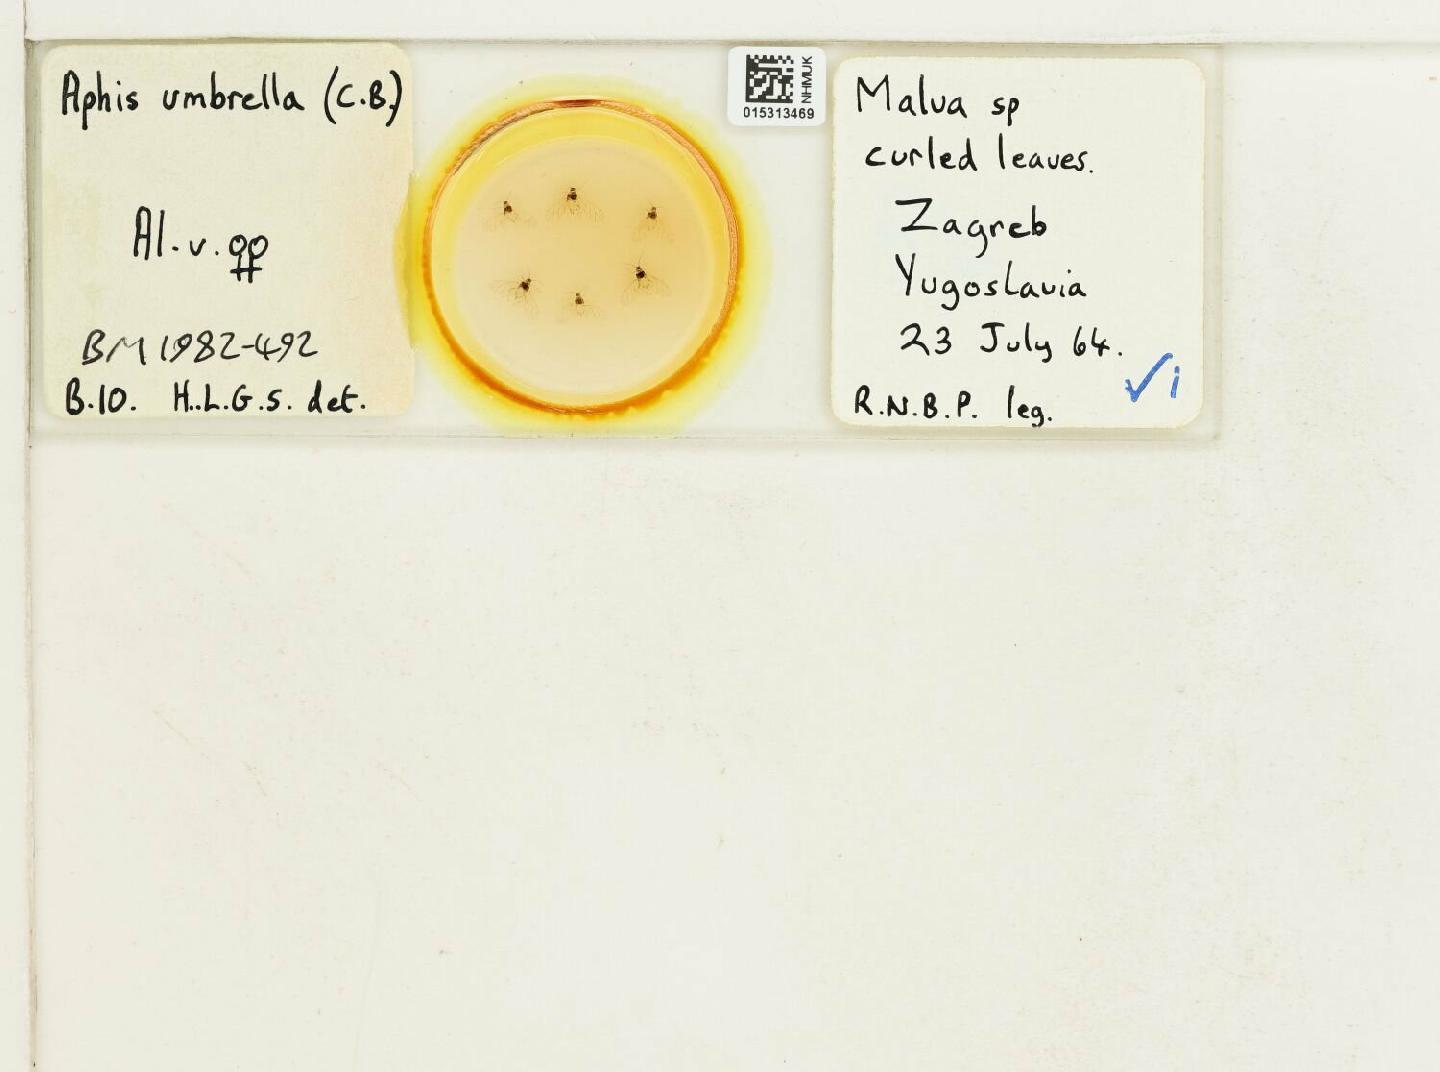 Aphis umbrella (C.B.)
Al. v. ♀♀
BM 1982-492
B.10. H.L.G.S. det.
NHMUK
015313469
Malva sp
curled leaves.
Zagreb
Yugoslavia
23 July 64.
✓i
R.N.B.P. leg.